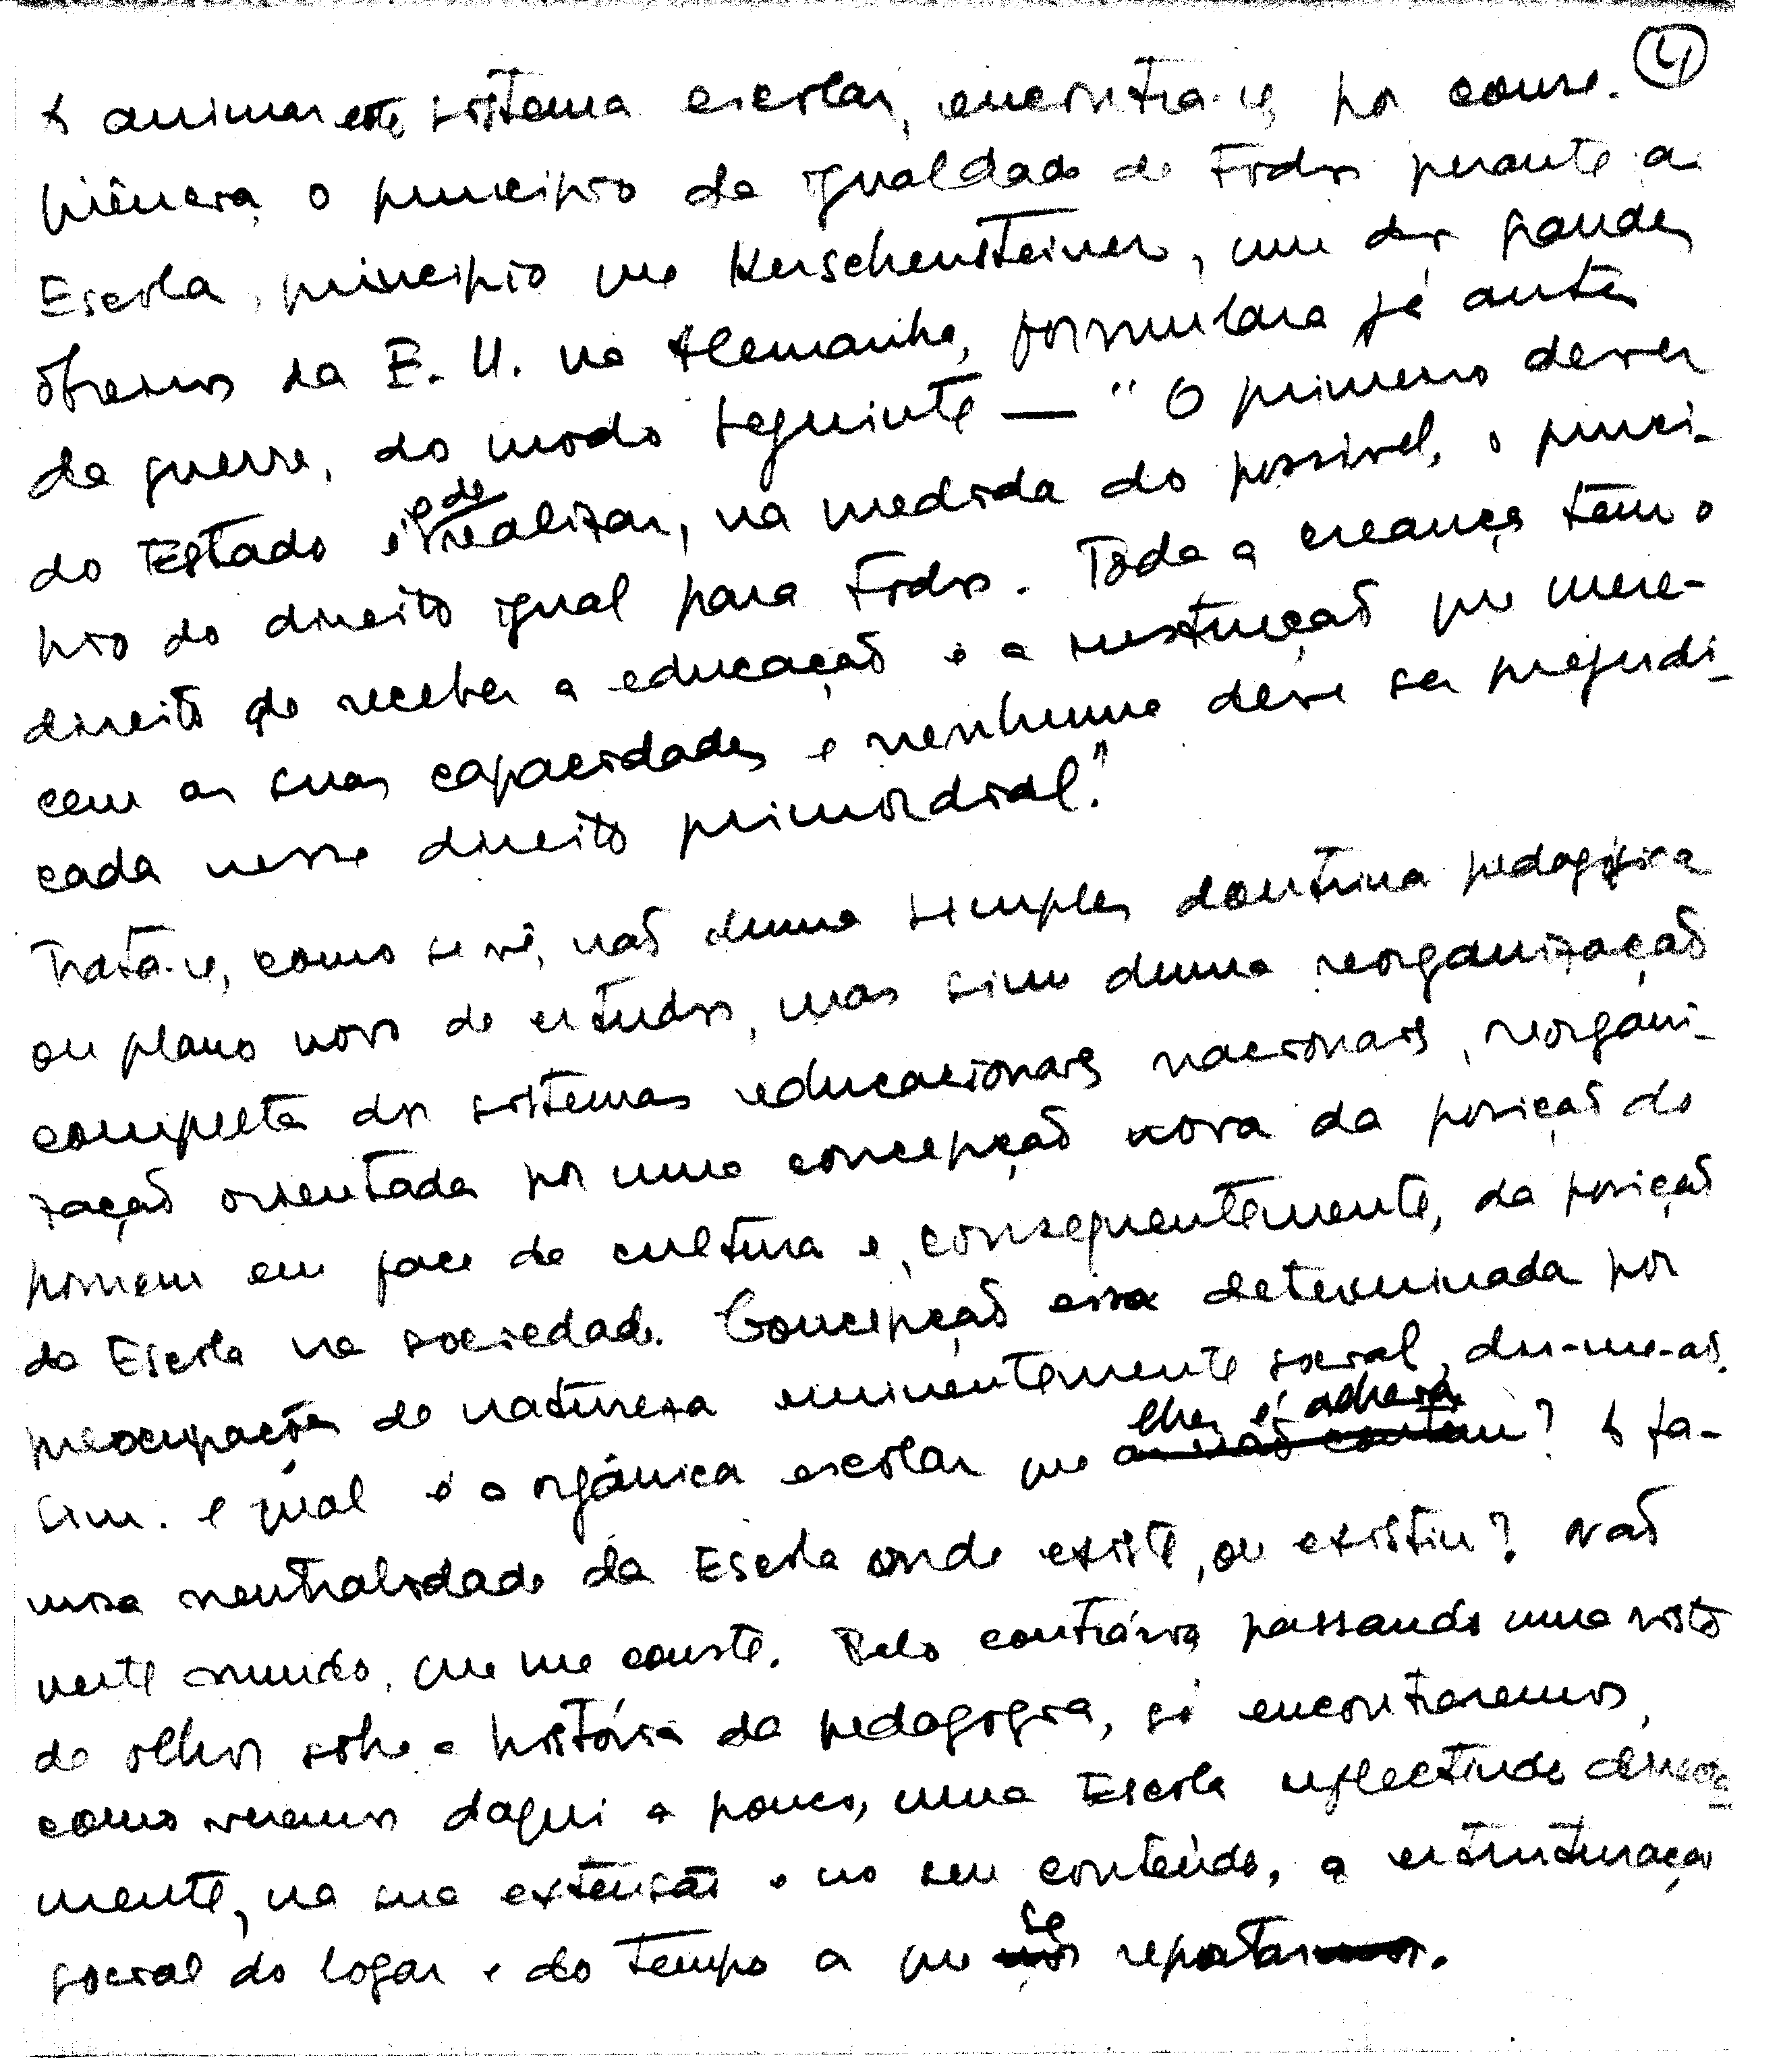 ④
A animar este sistema escolar, encontra-se, por conse-
quência, o princípio da igualdade de todos perante a
Escola, princípio que Kerschensteiner, um dos grandes
obreiros da E. U. na Alemanha, formulara já antes
da guerra, do modo seguinte — "O primeiro dever
do Estado é o de realizar, na medida do possível, o princí-
pio do direito igual para todos. Tôda a creança tem o
direito de receber a educação e a instrução que mere-
cem as suas capacidades e nenhuma deve ser prejudi-
cada nesse direito primordial."
Trata-se, como se vê, não duma simples doutrina pedagógica
ou plano novo de estudos, mas sim duma reorganização
completa dos sistemas educacionais nacionais, reorgani-
zação orientada por uma concepção nova da posição do
homem em face da cultura e, consequentemente, da posição
da Escola na sociedade. Concepção essa determinada por
preocupações de natureza eminentemente social, dir-me-ão.
Sim. e qual é a orgânica escolar que lhes é adversa? A fa-
mosa neutralidade da Escola onde existe, ou existiu? Não
neste mundo, que me conste. Pelo contrário, passando uma vista
de olhos sobre a história da pedagogia, só encontraremos,
como veremos daqui a pouco, uma Escola reflectindo directa-
mente, na sua extensão e no seu conteúdo, a estruturação
social do logar e do tempo a que se reporta.